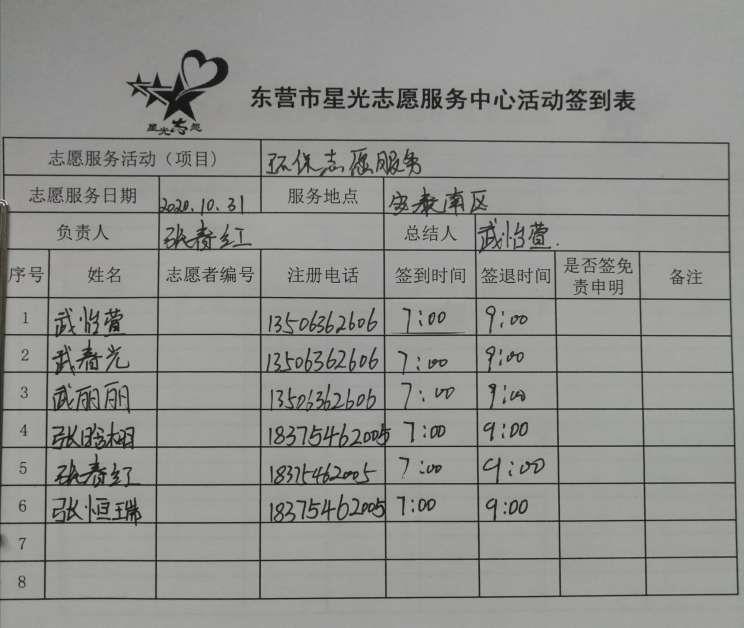 星光志愿
东营市星光志愿服务中心活动签到表
志愿服务活动（项目） 环保志愿服务
志愿服务日期 2020.10.31 服务地点 安泰南区
负责人 张春红 总结人 武怡萱.
序号 姓名 志愿者编号 注册电话 签到时间 签退时间 是否签免责申明 备注
1 武怡萱 13506362606 7:00 9:00
2 武春光 13506362606 7:00 9:00
3 武丽丽 13506362606 7:00 9:00
4 张晗栩 18375462005 7:00 9:00
5 张春红 18375462005 7:00 9:00
6 张恒瑞 18375462005 7:00 9:00
7
8